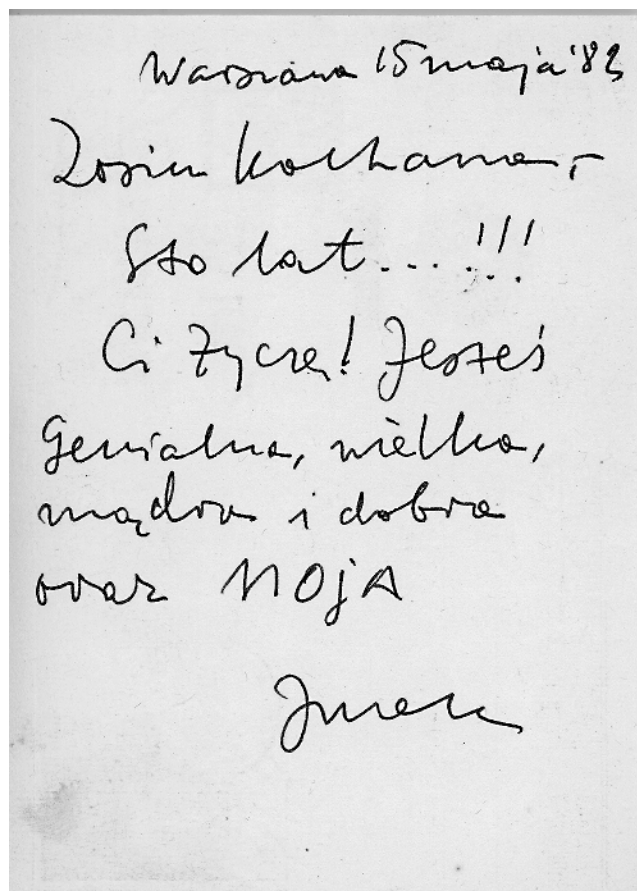 Warszawa 15 maja '83
Zosiu kochana,-
Sto lat....!!!
Ci życzę! Jesteś
Genialna, wielka,
mądra i dobra
oraz MOJA
Jurek